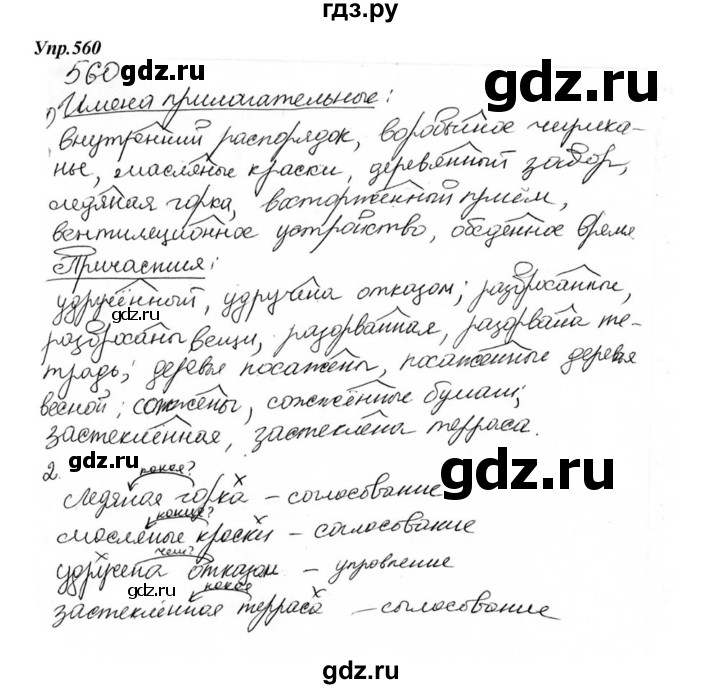 гдз.ру
Упр.560
560 gdz.ru gdz.ru
1) Имена прилагательные:
внутренний распорядок, воробьиное чирика-
нье, масляные краски, деревянный забор,
ледяная горка, восторженный приём,
вентиляционное устройство, обеденное время
Причастия:
удручённый, удручена отказом; разбросанные,
gdz.ru gdz.ru
разбросаны вещи, разорванная, разорвана те-
традь; деревья посажены, посаженные деревья
весной; сожжены, сожжённые бумаги;
застеклённая, застеклена терраса.
gdz.ru gdz.ru
2. какая?
ледяная горка – согласование
какие?
масляные краски – согласование
чем?
удручена отказом – управление
gdz.ru какая
застеклённая терраса – согласование
gdz.ru